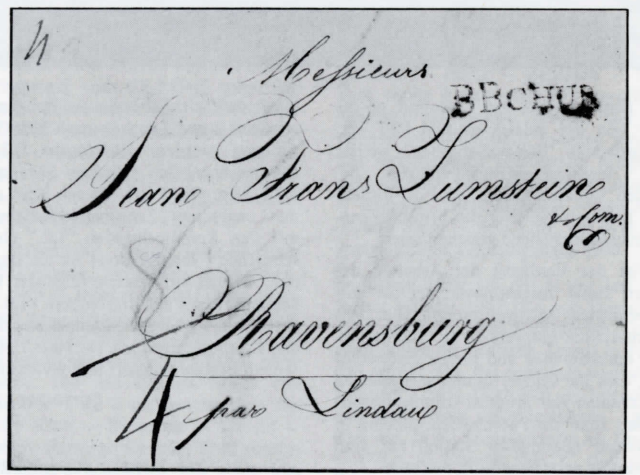 Messieurs
BBCHUR
Jean Frans Zumstein
& Com.
Ravensburg
4 par Lindau